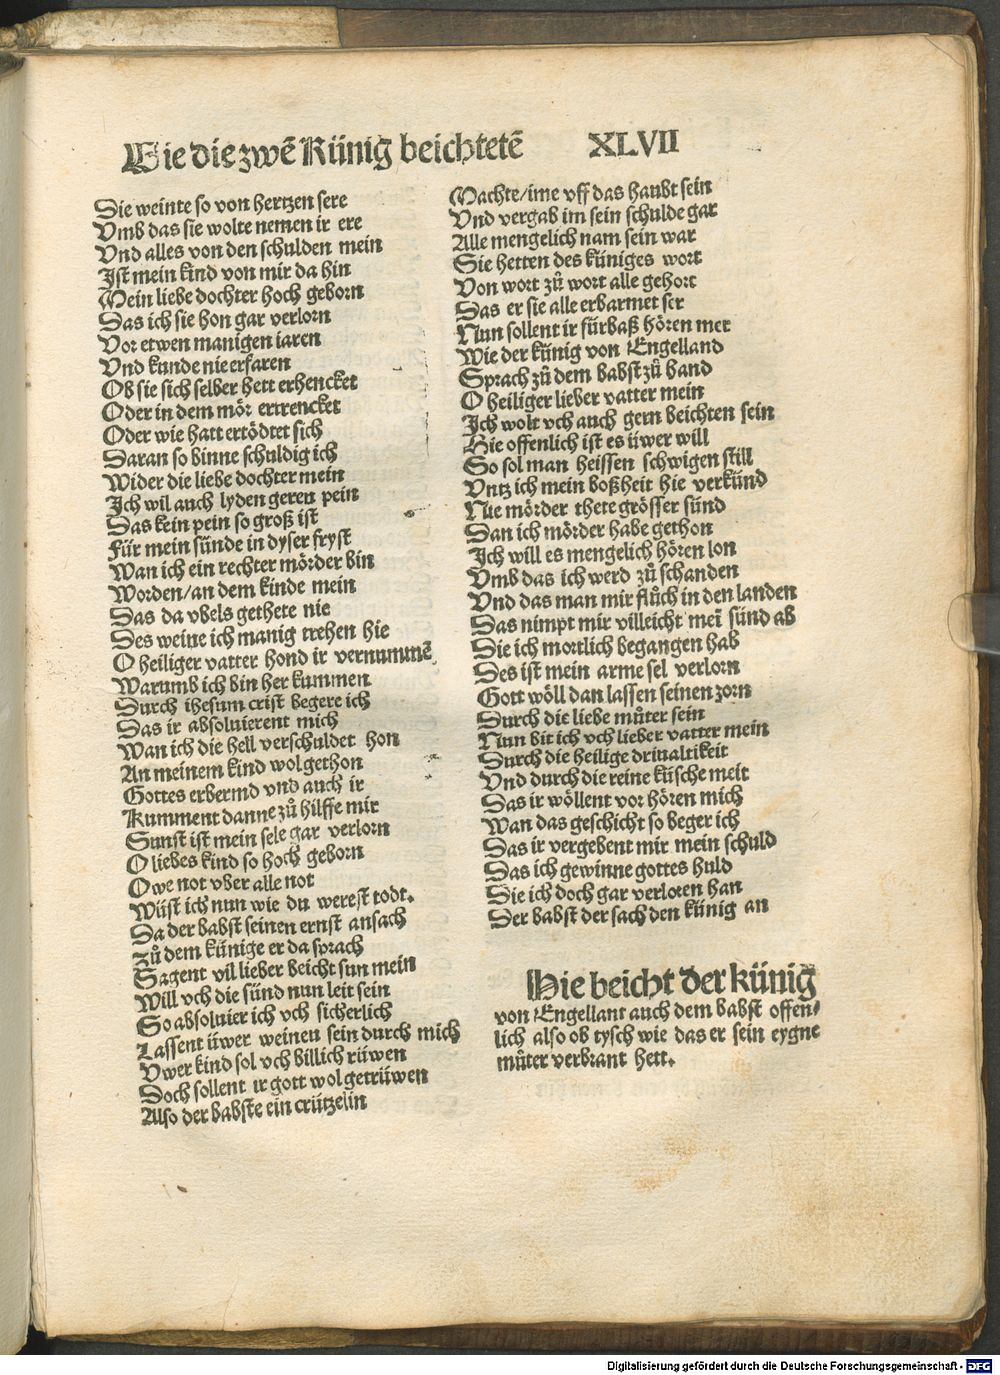 Wie die zwē Künig beichtetē XLVII
Sie weinte so von hertzen sere
Vmb das sie wolte nemen ir ere
Vnd alles von den schulden mein
Ist mein kind von mir da hin
Mein liebe dochter hoch geborn
Das ich sie hon gar verlorn
Vor etwen manigen iaren
Vnd kunde nie erfaren
Ob sie sich selber hett erhencket
Oder in dem mör ertrencket
Oder wie hatt ertödtet sich
Daran so binne schuldig ich
Wider die liebe dochter mein
Ich wil auch lyden geren pein
Das kein pein so groß ist
Für mein sünde in dyser fryst
Wan ich ein rechter mörder bin
Worden/an dem kinde mein
Das da vbels gethete nie
Des weine ich manig trehen hie
O heiliger vatter hond ir vernummē
Warumb ich bin her kummen
Durch ihesum crist begere ich
Das ir absoluierent mich
Wan ich die hell verschuldet hon
An meinem kind wol gethon
Gottes erbermd vnd auch ir
Kumment danne zů hilffe mir
Sunst ist mein sele gar verlorn
O liebes kind so hoch geborn
Owe not vber alle not
Wüst ich nun wie du werest todt.
Da der babst seinen ernst ansach
Zů dem künige er da sprach
Sagent vil lieber beicht sun mein
Will vch die sünd nun leit sein
So absoluier ich vch sicherlich
Lassent üwer weinen sein durch mich
Vwer kind sol vch billich rüwen
Doch sollent ir gott wol getrüwen
Also der babste ein crützelin
Machte/ime vff das haubt sein
Vnd vergab im sein schulde gar
Alle mengelich nam sein war
Sie hetten des küniges wort
Von wort zů wort alle gehort
Das er sie alle erbarmet ser
Nun sollent ir fürbaß hören mer
Wie der künig von Engelland
Sprach zů dem babst zů hand
O heiliger lieber vatter mein
Ich wolt vch auch gern beichten sein
Hie offenlich ist es üwer will
So sol man heissen schwigen still
Vntz ich mein boßheit hie verkünd
Nie mörder thete grösser sünd
Dan ich mörder habe gethon
Ich will es mengelich hören lon
Vmb das ich werd zů schanden
Vnd das man mir flůch in den landen
Das nimpt mir villeicht mei̅ sünd ab
Die ich mortlich begangen hab
Des ist mein arme sel verlorn
Gott wöll dan lassen seinen zorn
Durch die liebe můter sein
Nun bit ich vch lieber vatter mein
Durch die heilige driualtikeit
Vnd durch die reine küsche meit
Das ir wöllent vor hören mich
Wan das geschicht so beger ich
Das ir vergebent mir mein schuld
Das ich gewinne gottes huld
Die ich doch gar verloren han
Der babst der sach den künig an
Hie beicht der künig
von Engellant auch dem babst offen-
lich also ob tysch wie das er sein eygne
můter verbrant hett.
Digitalisierung gefördert durch die Deutsche Forschungsgemeinschaft - DFG